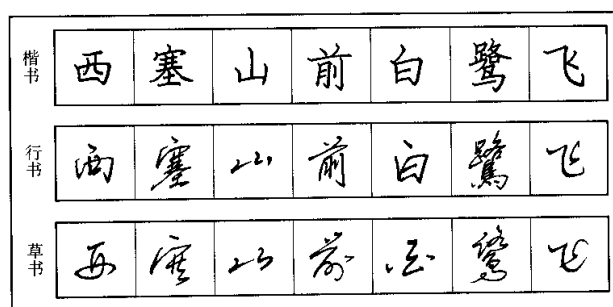 楷书 西塞山前白鹭飞
行书 西塞山前白鹭飞
草书 西塞山前白鹭飞